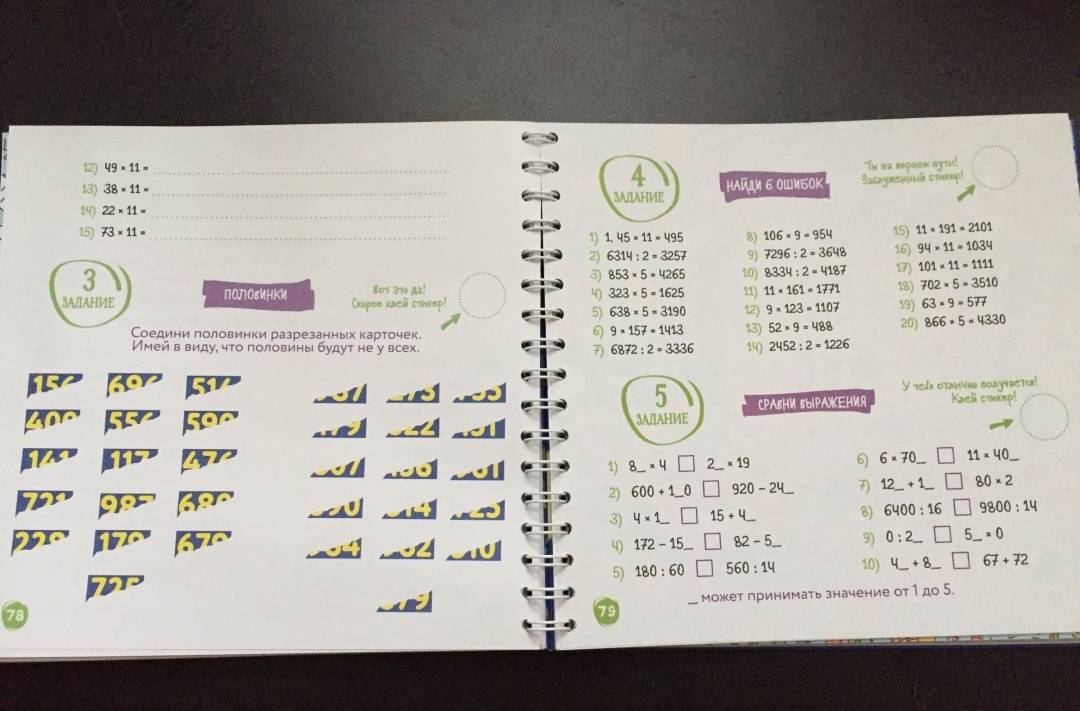 12) 49 × 11 =
13) 38 × 11 =
14) 22 × 11 =
15) 73 × 11 =
3
ЗАДАНИЕ
ПОЛОВИНКИ
Вот это да!
Скорее клей стикер!
Соедини половинки разрезанных карточек.
Имей в виду, что половины будут не у всех.
78
4
ЗАДАНИЕ
НАЙДИ 6 ОШИБОК
Ты на верном пути!
Заслуженный стикер!
1) 1. 45 × 11 = 495
2) 6314 : 2 = 3257
3) 853 × 5 = 4265
4) 323 × 5 = 1625
5) 638 × 5 = 3190
6) 9 × 157 = 1413
7) 6872 : 2 = 3336
8) 106 × 9 = 954
9) 7296 : 2 = 3648
10) 8334 : 2 = 4187
11) 11 × 161 = 1771
12) 9 × 123 = 1107
13) 52 × 9 = 488
14) 2452 : 2 = 1226
15) 11 × 191 = 2101
16) 94 × 11 = 1034
17) 101 × 11 = 1111
18) 702 × 5 = 3510
19) 63 × 9 = 577
20) 866 × 5 = 4330
5
ЗАДАНИЕ
СРАВНИ ВЫРАЖЕНИЯ
У тебя отлично получается!
Клей стикер!
1) 8_ × 4 □ 2_ × 19
2) 600 + 1_0 □ 920 – 24_
3) 4 × 1_ □ 15 + 4_
4) 172 – 15_ □ 82 – 5_
5) 180 : 60 □ 560 : 14
6) 6 × 70_ □ 11 × 40_
7) 12_ + 1_ □ 80 × 2
8) 6400 : 16 □ 9800 : 14
9) 0 : 2_ □ 5_ × 0
10) 4_ + 8_ □ 67 + 72
_ может принимать значение от 1 до 5.
79